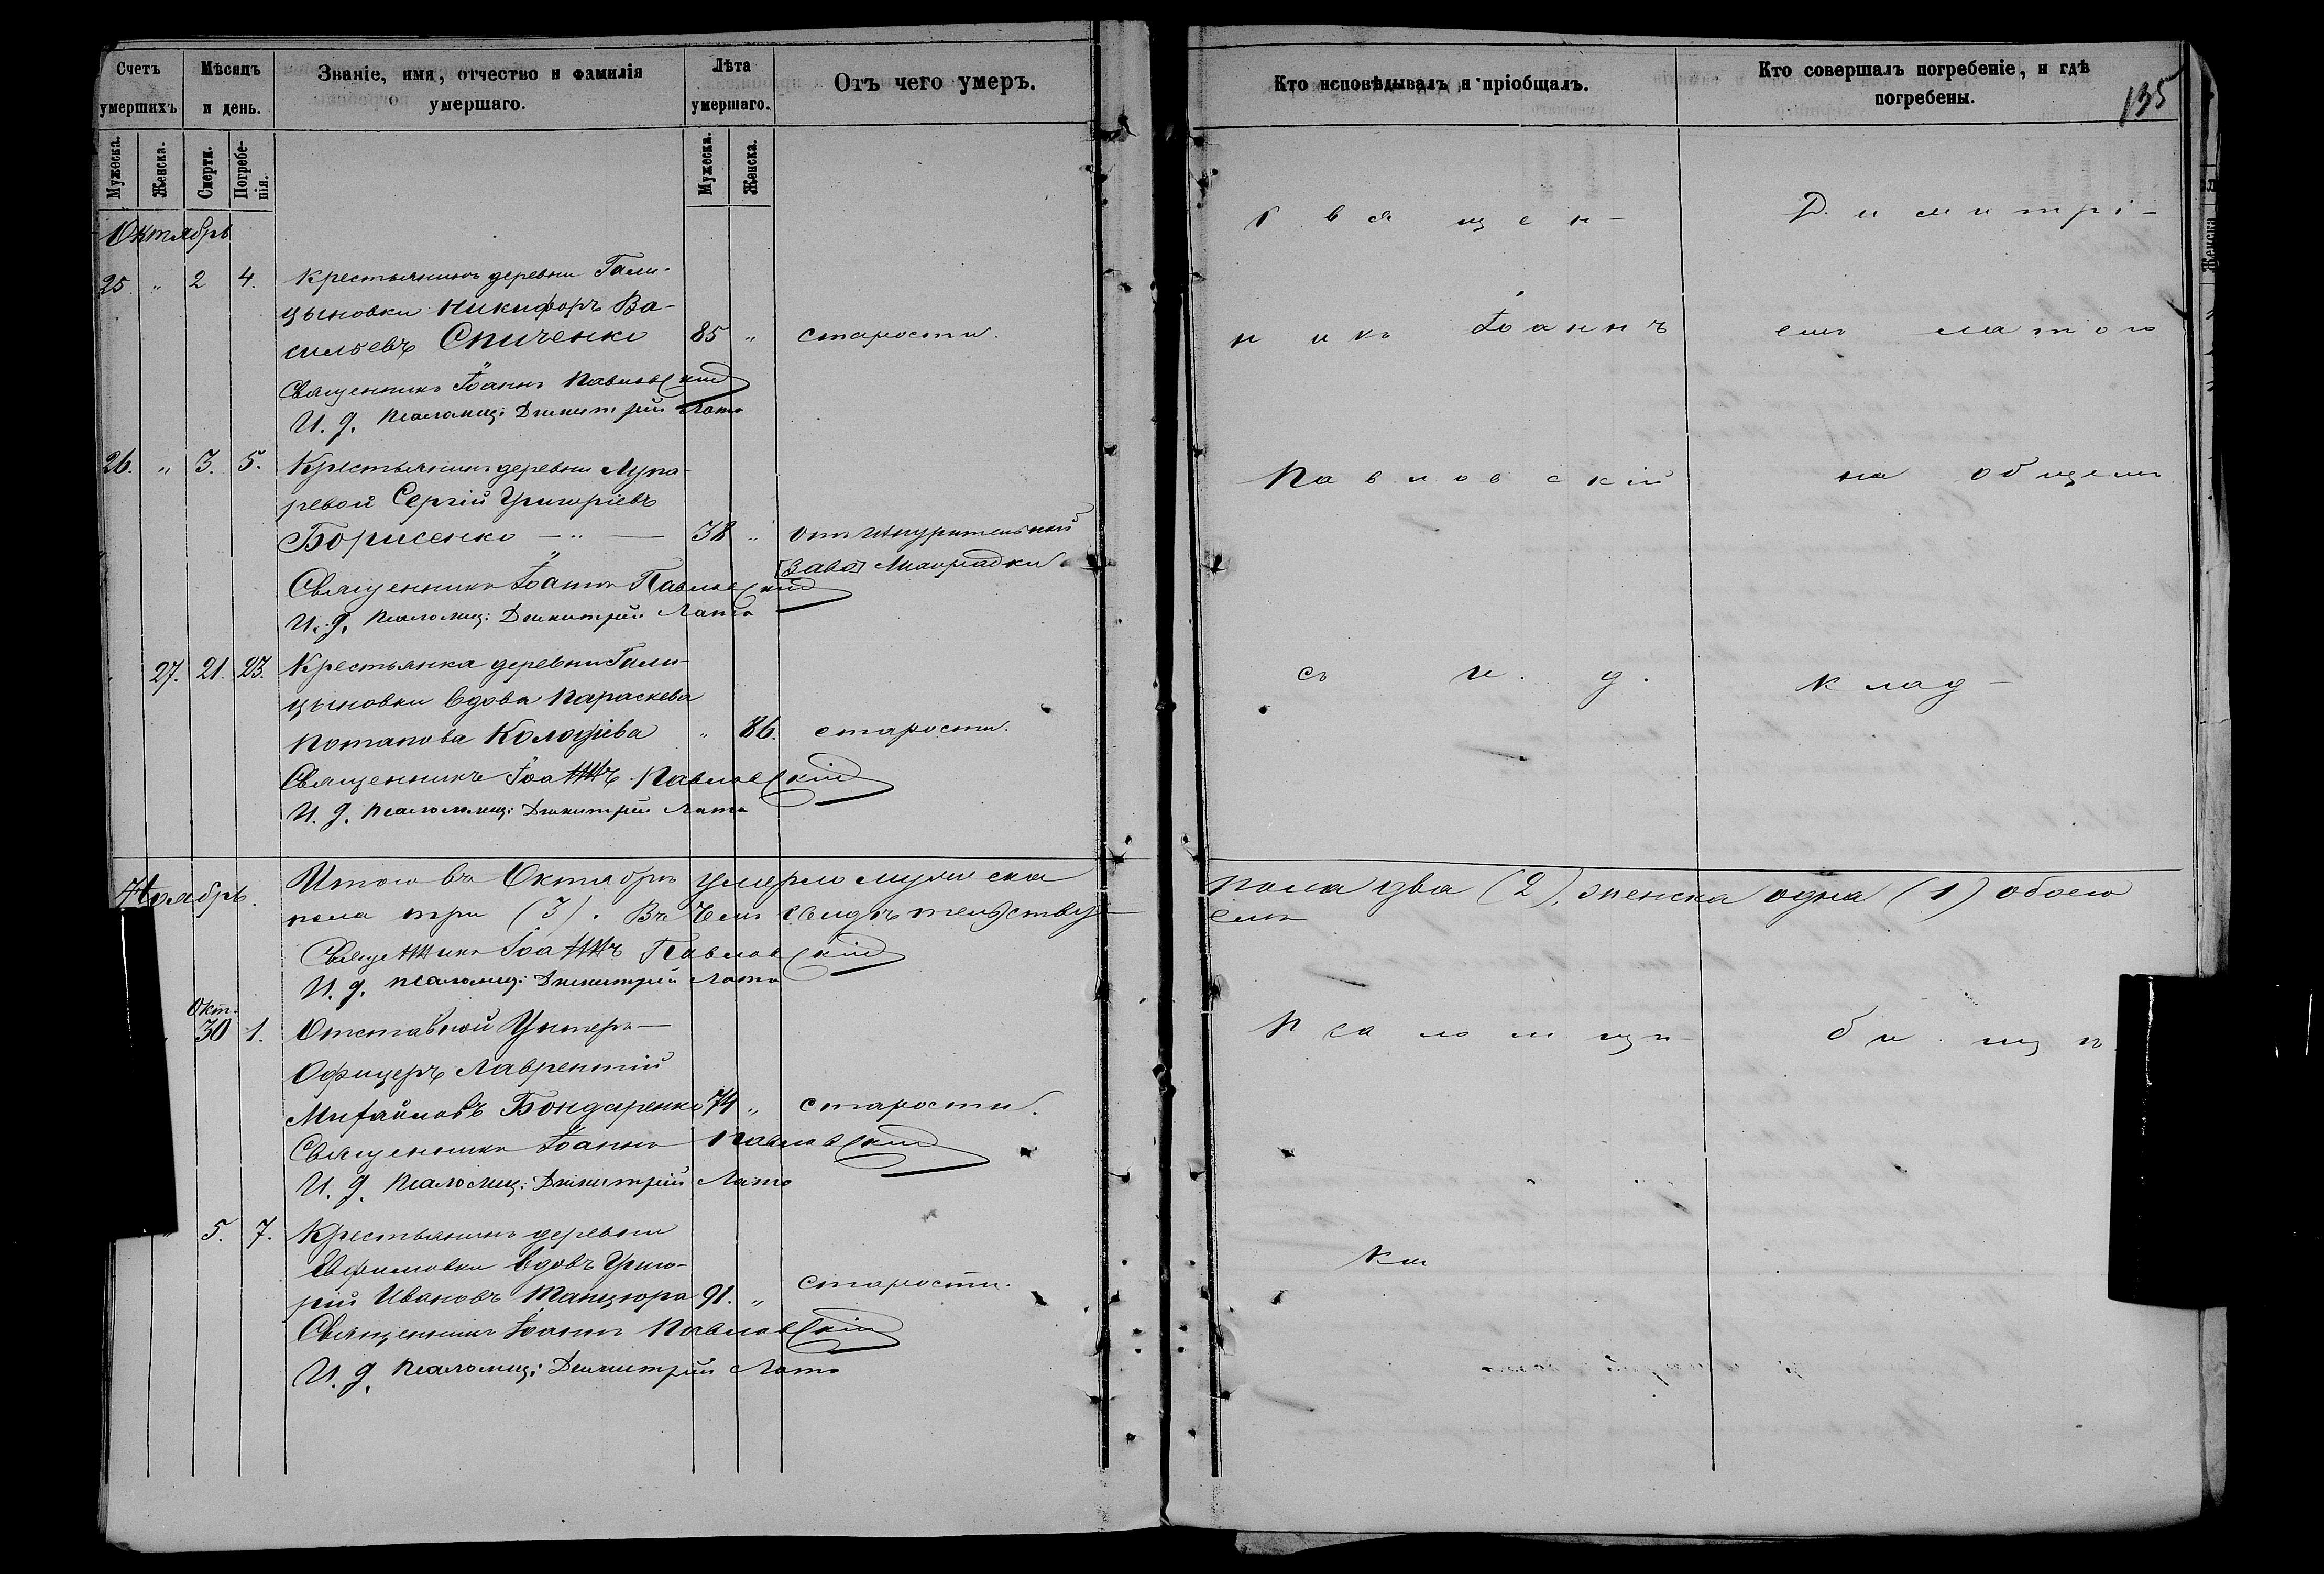 Счетъ умершихъ
Мѣсяцъ и день.
Званіе, имя, отчество и фамилія умершаго.
Лѣта умершаго.
Отъ чего умеръ.
Мужеска.
Женска.
Смерти.
Погребе-
нія.
Мужеска.
Женска.
Октябрь
25. " 2 4. Крестьянинъ деревни Гали-
цыновки Никифоръ Ва-
сильевъ Спиченко 85 " старости.
Священникъ Іоаннъ Павловскій
И. д. Псаломщ: Димитрій Лато
26. " 3. 5. Крестьянинъ деревни Лупа-
ревой Сергій Григоріевъ
Борисенко — " — 38 " отъ
Лихорадки.
Священникъ Іоаннъ Павловскій
И. д. Псаломщ: Димитрій Лато
27. 21. 23. Крестьянка деревни Гали-
цыновки вдова Параскева
Потапова " 86. старости.
Священникъ Іоаннъ Павловскій
И. д. Псаломщ: Димитрій Лато
Ноябрь.
Итого въ Октябрѣ умерло мужеска
пола три (3). Въ чемъ свидѣтельству-
Священникъ Іоаннъ Павловскій
И. д. Псаломщ: Димитрій Лато
Окт.
30 1. Отставной Унтеръ-
Офицеръ Лаврентій
Михайловъ Бондаренко 74 " старости.
Священникъ Іоаннъ Павловскій
И. д. Псаломщ: Димитрій Лато
5. 7. Крестьянинъ деревни
Ефимовки вдовъ Григо-
рій Ивановъ Танцюра 91. " старости.
Священникъ Іоаннъ Павловскій
И. д. Псаломщ: Димитрій Лато
Кто исповѣдывалъ и пріобщалъ.
Кто совершалъ погребеніе, и гдѣ
погребены.
135
Священ- Димитрі-
никъ Іоаннъ емъ Латою
Павловскій на общемъ
съ и. д. клад-
пола два (2), женска одна (1) обоего
емъ
Псаломщи- бищѣ.
комъ
Женска